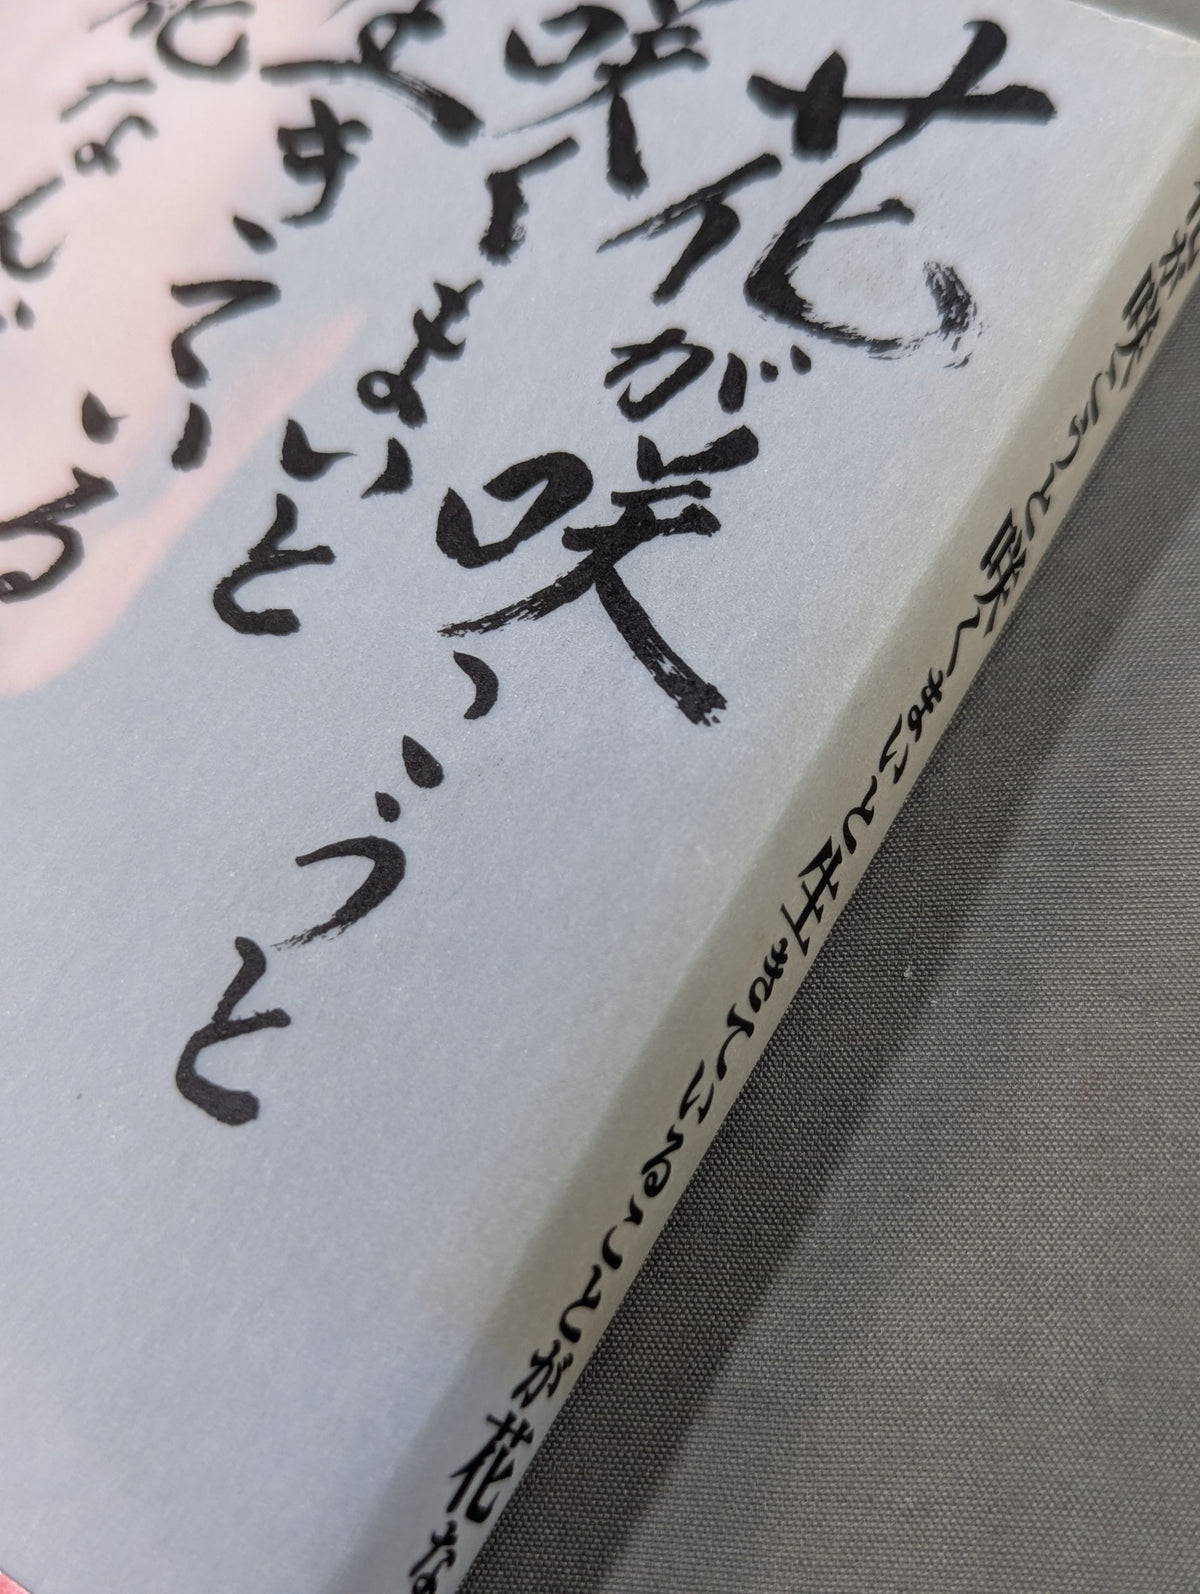 花が咲こうと
咲くまいと
生きてい
花なんだ
花が咲こうと咲くまいと生きていることが花な